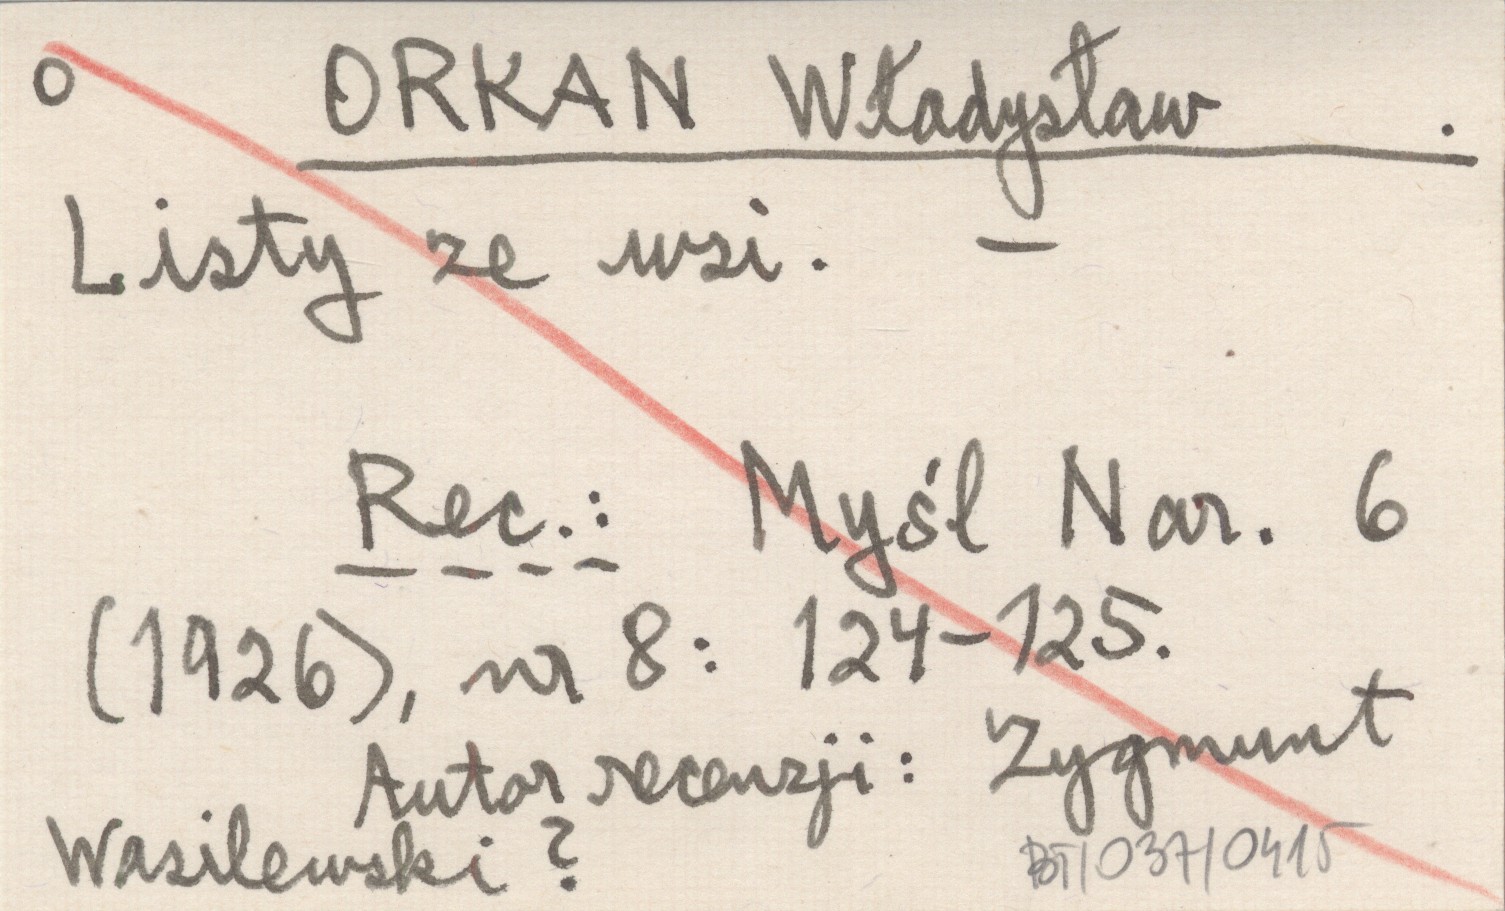 o ORKAN Władysław .
Listy ze wsi. –
Rec.: Myśl Nar. 6
(1926), nr 8: 124–125.
Autor recenzji: Zygmunt
Wasilewski ?
BT/037/0415